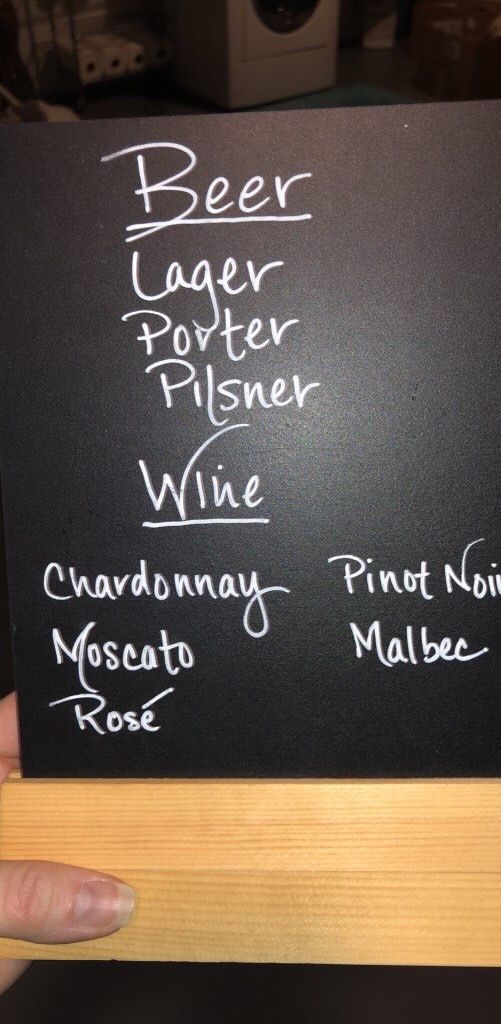 Beer
Lager
Porter
Pilsner
Wine
Chardonnay
Moscato
Rosé
Pinot Noi
Malbec